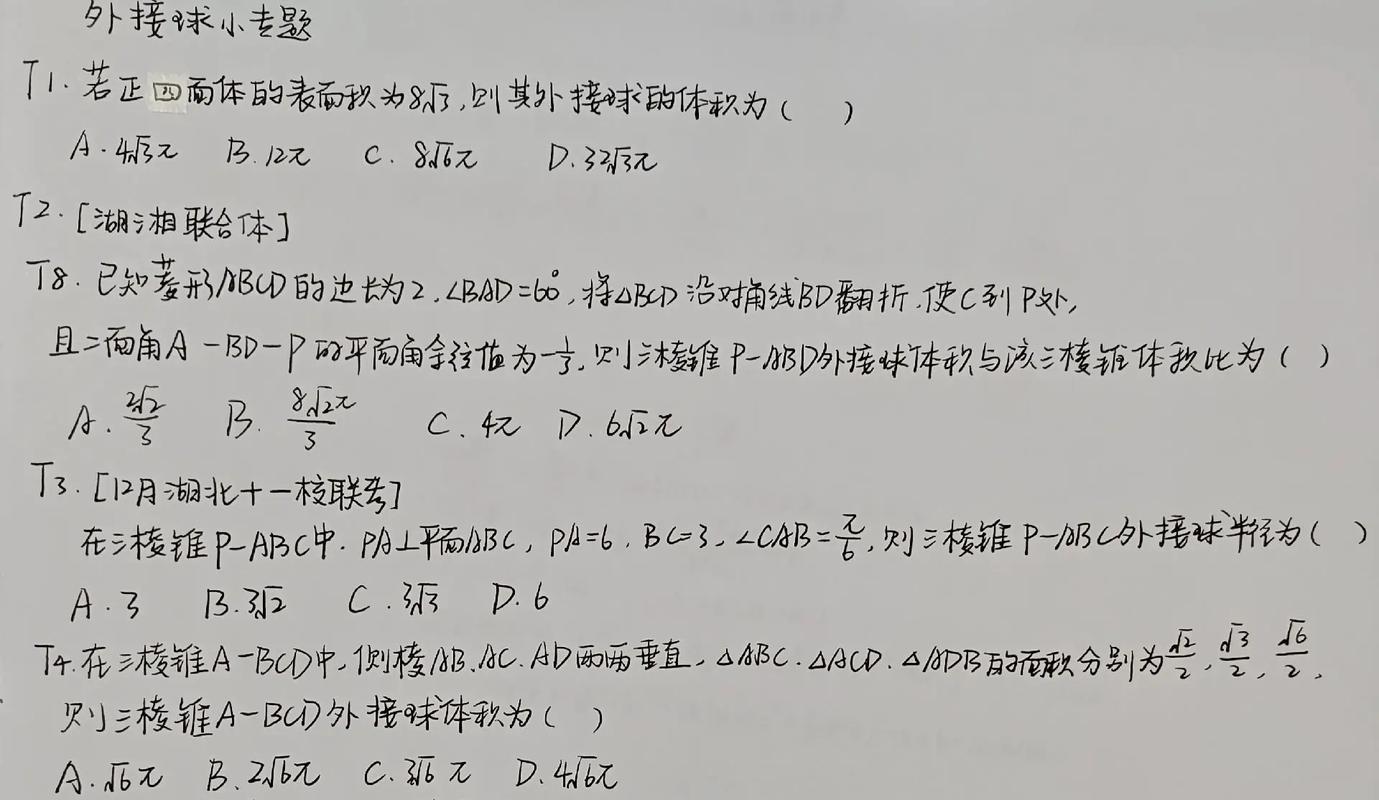 外接球小专题
T1. 若正四面体的表面积为8√3,则其外接球的体积为( )
A. 4√3π B. 12π C. 8√6π D. 32√3π
T2. [湖湘联合体]
T8. 已知菱形ABCD的边长为2,∠BAD=60°,将△BCD沿对角线BD翻折,使C到P处,
且二面角A-BD-P的平面角余弦值为-1/3,则三棱锥P-ABD外接球体积与该三棱锥体积比为( )
A. 2√2/3 B. 8√2π/3 C. 4π D. 6√2π
T3. [12月湖北十一校联考]
在三棱锥P-ABC中. PA⊥平面ABC, PA=6, BC=3, ∠CAB=π/6, 则三棱锥P-ABC外接球半径为( )
A. 3 B. 3√2 C. 3√3 D. 6
T4. 在三棱锥A-BCD中,侧棱AB.AC.AD两两垂直,△ABC.△ACD.△ADB的面积分别为√2/2,√3/2,√6/2,
则三棱锥A-BCD外接球体积为( )
A. √6π B. 2√6π C. 3√6π D. 4√6π